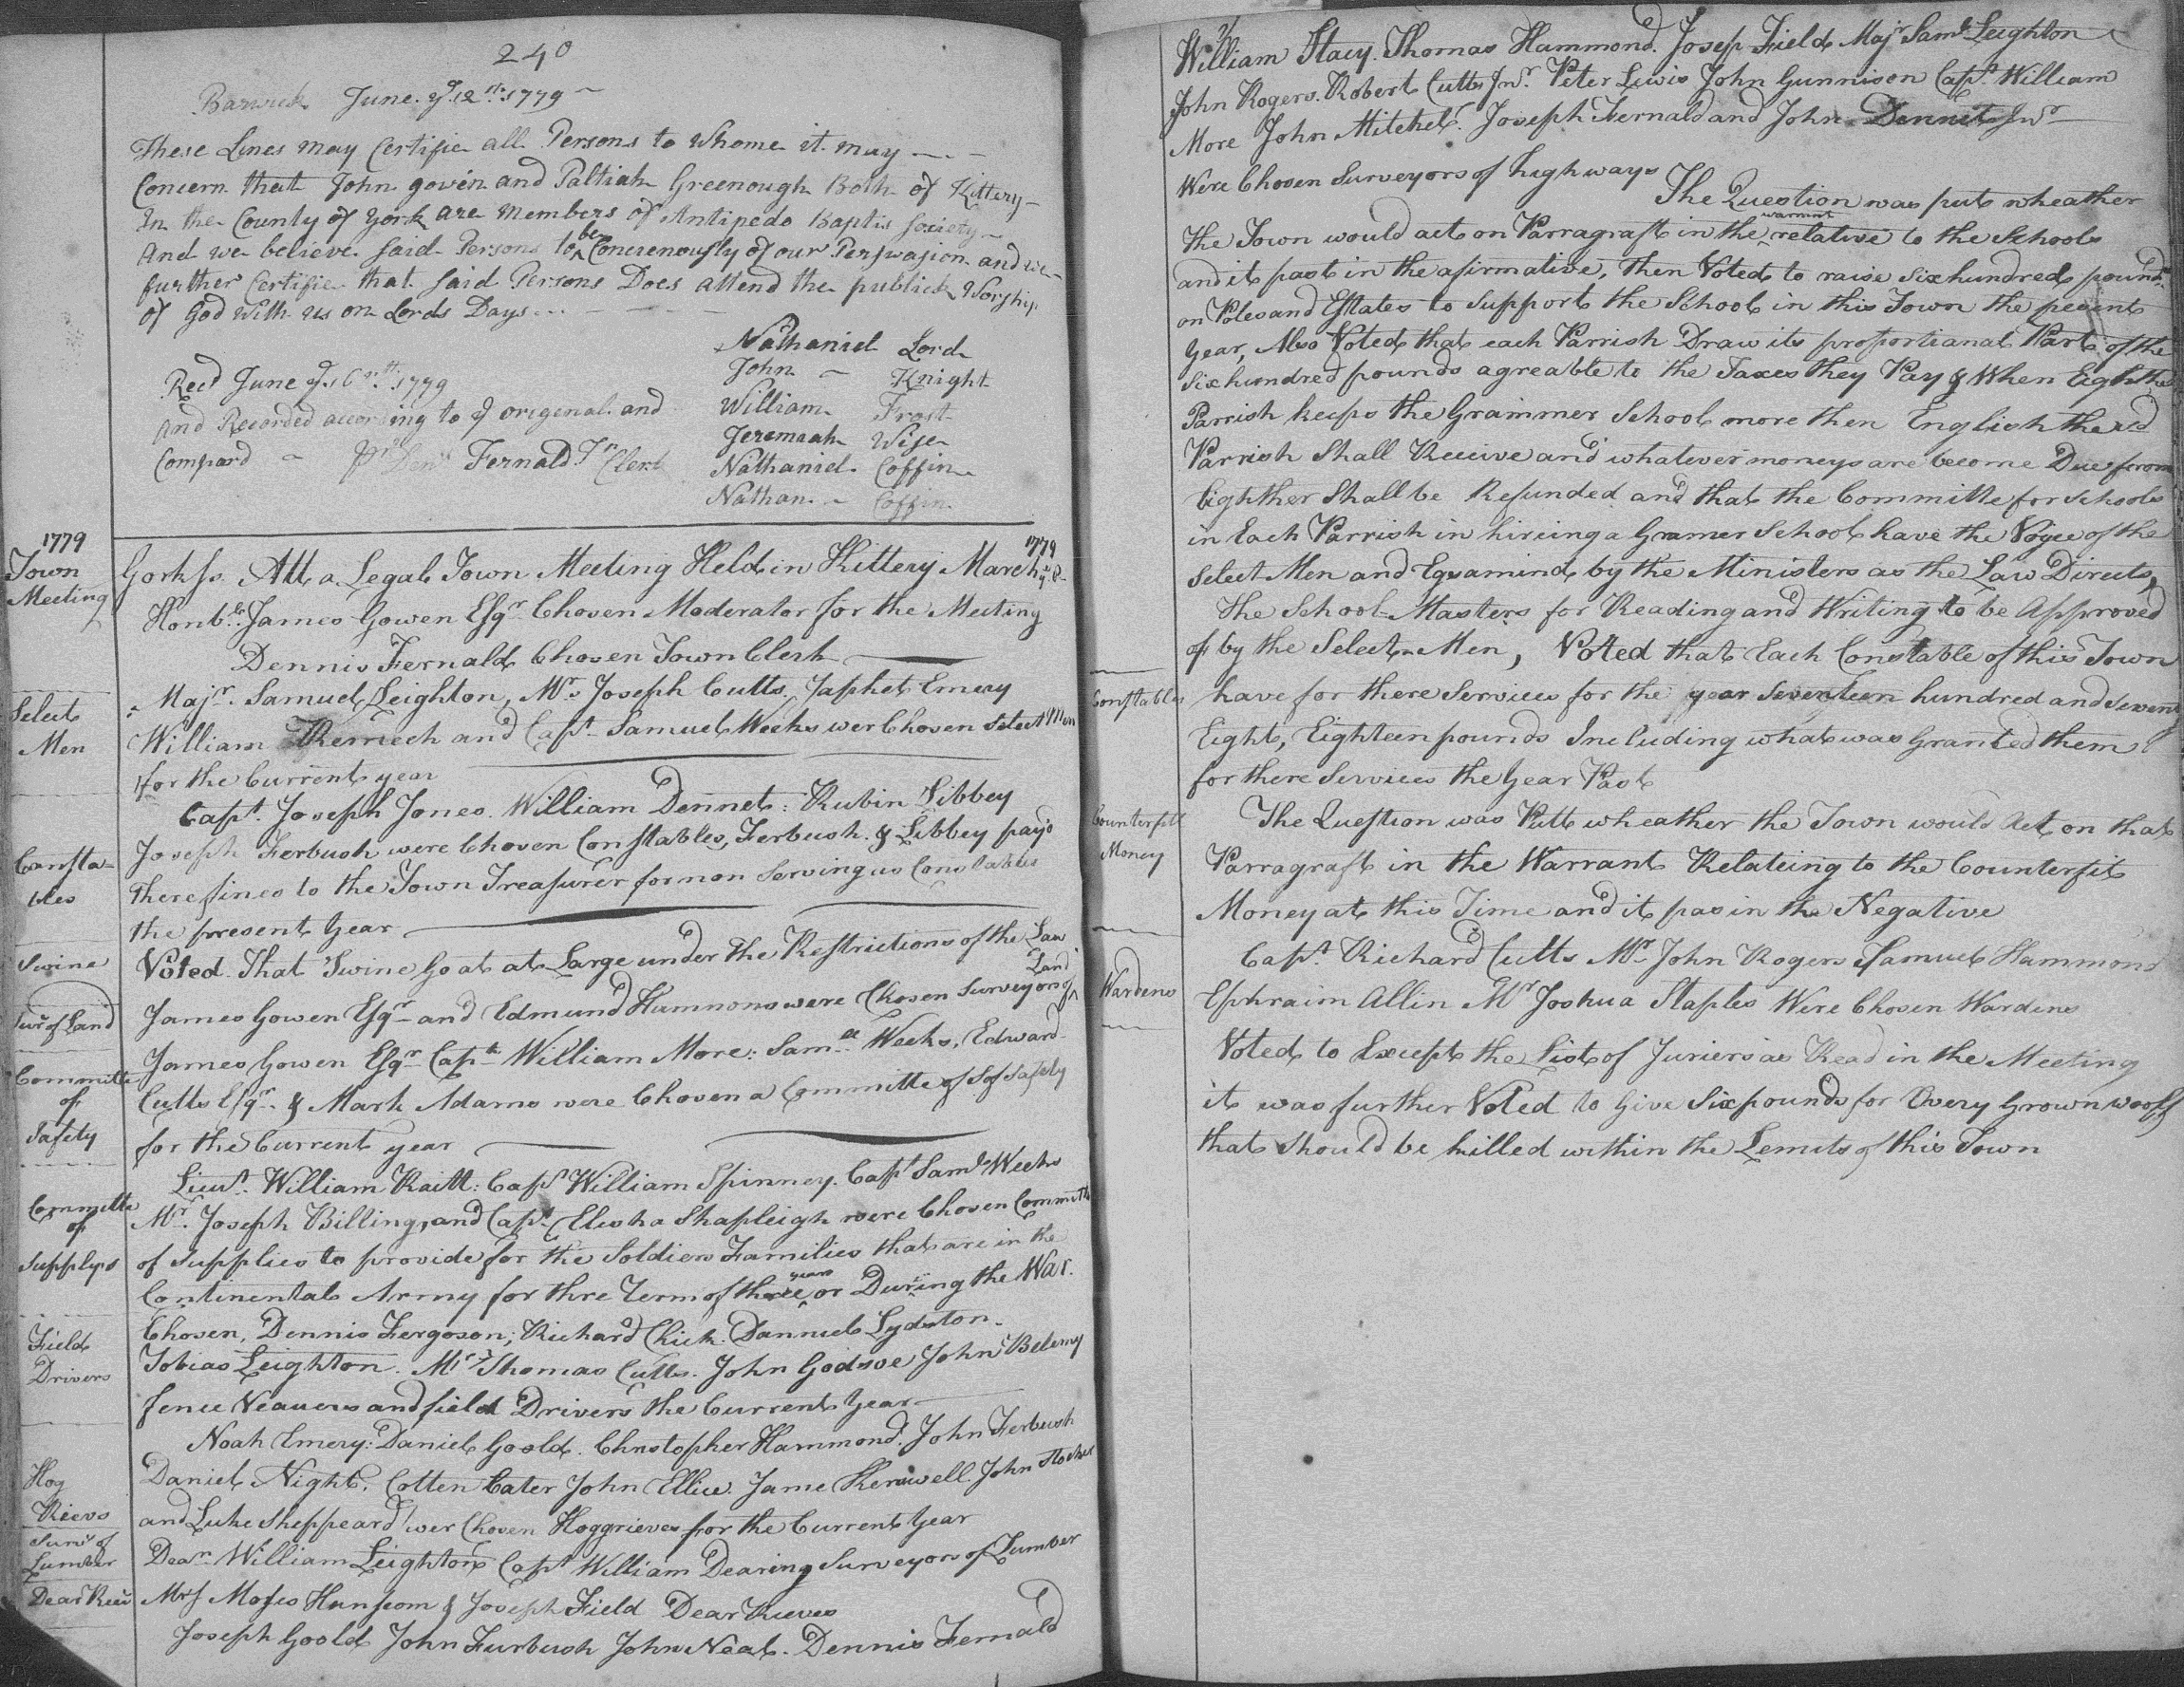 240
Barwick June ye 12th 1779
These Lines may Certifie all Persons to Whome it may
Concern that John gowen and Paltiah Greenough Both of Kittery
In the County of York are Members of Antipedo Baptis Society
And we believe said Persons to be Concienously of our Perswasion and we
further Certifie that said Persons Does attend the publick Worship
of God With us on Lords Days
Nathaniel Lord
John Knight
William Frost
Jeremiah Wise
Nathaniel Coffin
Nathan Coffin
Recd June ye 16th 1779
And Recorded according to ye origenal and
Compard pr Denn Fernald Jn Clerk
1779
Town
Meeting
York ss. Att a Legal Town Meeting Held in Kittery March 1779
Honble James Gowen Esqr Chosen Moderator for the Meeting
Dennis Fernald Chosen Town Clerk
Select
Men
Majr. Samuel Leighton, Mr. Joseph Cutts. Japhet Emery
William Kernech and Capt Samuel Weeks wer Chosen Select Men
for the Current year
Consta-
bles
Capt. Joseph Jones. William Dennet: Rubin Libbey
Joseph Ferbush were Chosen Constables, Ferbush & Libbey pays
there fines to the Town Treasurer for non Serving as Constables
the present Year
Swine
Voted. That Swine Go at at Large under the Restrictions of the Law
Survr of Land
James Gowen Esqr and Edmund Hamnons were Chosen Surveyors Land
Committe
of
Safety
James Gowen Esqr Capt William More: Samll Weeks. Edward
Cutts Esqr. & Mark Adams were Chosen a Committe of Sof Safety
for the Current year
Committe
of
Supplys
Lieut. William Raitt: Capt William Spinney. Capt Saml Weeks
Mr. Joseph Billing, and Capt Elisha Shapleigh were Chosen Committe
of Supplies to provide for the Soldiers Families that are in the
Continental Army for thre Term of three years or During the War.
Field
Drivers
Chosen, Dennis Fergoson; Richard Chick. Danniel Lydston.
Tobias Leighton. Mr Thomas Cutts. John Godsoe John Belemy
fence Veauers and field Drivers the Current Year
Hog
Rieves
Noah Emery: Daniel Goold. Christopher Hammond. John Ferbush
Daniel Night. Cotten Cater John Ellice. Jame Kerswell. John
and Luke Sheppeard wer Chosen Hoggrieves for the Current Year
Survr of
Lumber
Dean William Leighton Capt William Dearing Surveyors of Lumber
Dear Rieves
Mrs Moses Hanscom & Joseph Field Dear Rieves
Joseph Goold John Furbush John Neal. Dennis Fernald
William Stacy. Thomas Hammond. Josep Field Majr Saml Leighton
John Rogers. Robert Cutts Jnr. Peter Lewis John Gunnison Capt. William
More John Mitchel. Joseph Fernald and John Dennet Jnr
Were Chosen Surveyors of highways
The Question was put wheather
the Town would act on Parragraft in the warrant relative to the Schools
and it past in the afirmative, then Voted to raise Six hundred pounds
on Poles and Estates to Support the School in this Town the pecent
Year, Also Voted that each Parrish Draw its proportianal Part of the
Six hundred pounds agreable to the Taxes they Pay & When Eighther
Parrish keeps the Grammer School more then English the sd
Parrish Shall Receive and whatever moneys are become Due from
Eighther Shall be Refunded and that the Committe for Schools
in Each Parrish in hireing a Gramer School have the Voyce of the
Select Men and Egsamind by the Ministers as the Law Directs,
The School Masters for Reading and Writing to be Approved
of by the Select Men, Voted that Each Constable of this Town
Constables
have for there Services for the year Seventeen hundred and Seventy
Eight, Eighteen pounds Including what was Granted them
for there Services the Year Past
Counterfitt
Money
The Question was Putt wheather the Town would Act on that
Parragraft in the Warrant Relateing to the Counterfit
Money at this Time and it pas in the Negative
Wardens
Capt. Richard Cutts Mr John Rogers Samuel Hammond
Ephraim Allin Mr Joshua Staples Were Chosen Wardens
Voted to Except the List of Juriers as Read in the Meeting
it was further Voted to Give Six pounds for Every Grown woolf
that should be killed within the Lemits of this Town